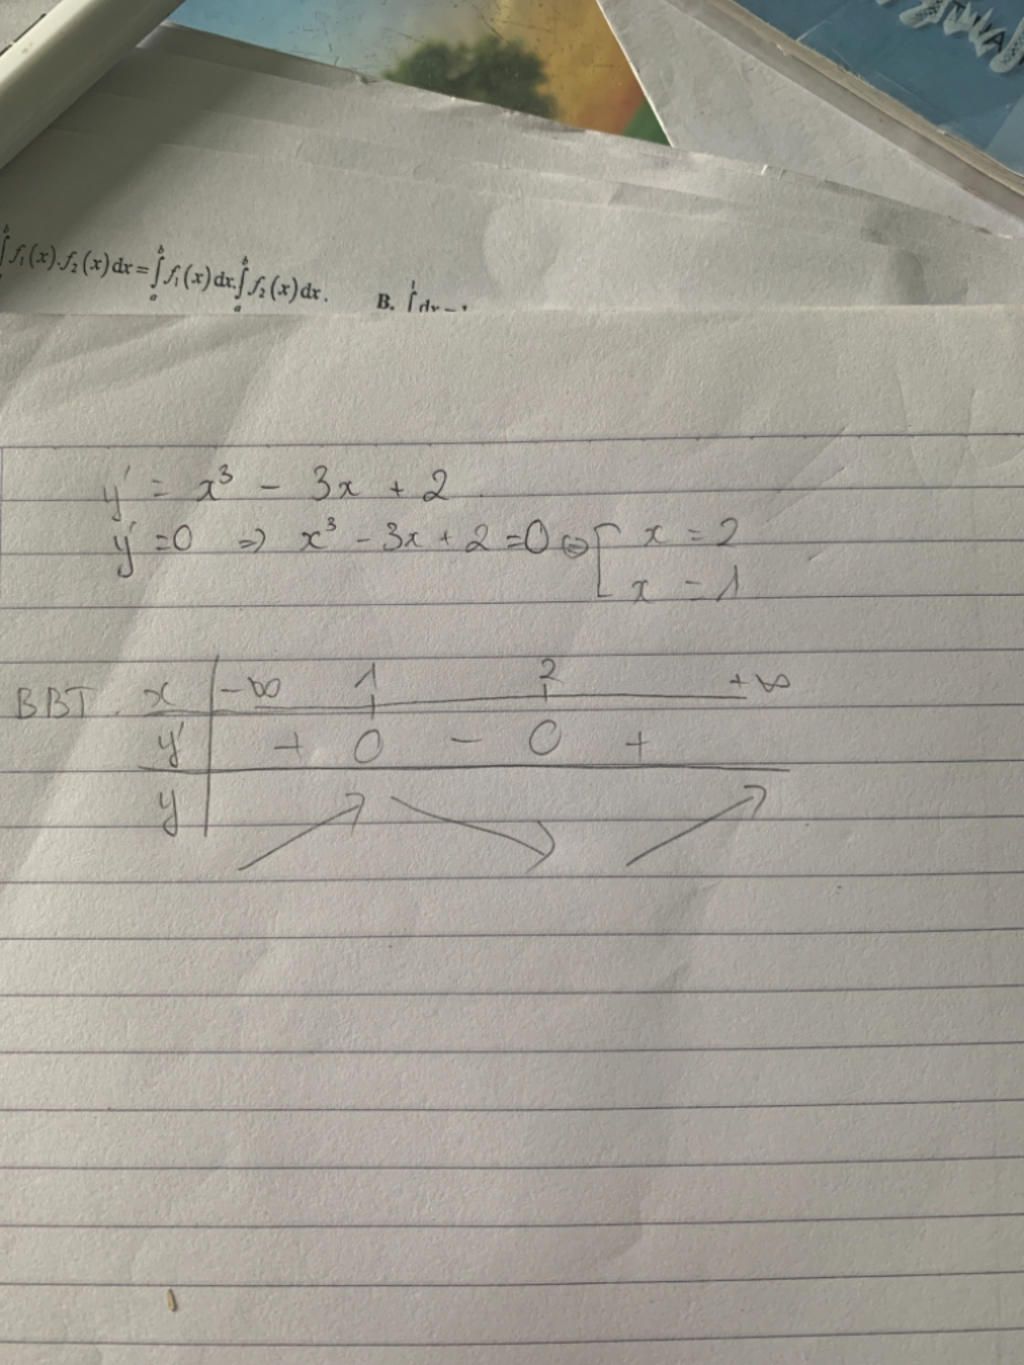 ∫ f₁(x).f₂(x)dx = ∫ₐᵇ f₁(x)dx.∫ₐᵇ f₂(x)dx.    B. ∫ dx
y' = x³ - 3x + 2
y' = 0 ⇒ x³ - 3x + 2 = 0 ⇔ [ x = 2
x = 1
BBT. x | -∞ 1 2 +∞
y' | + 0 - 0 +
y | ↗ ↘ ↗